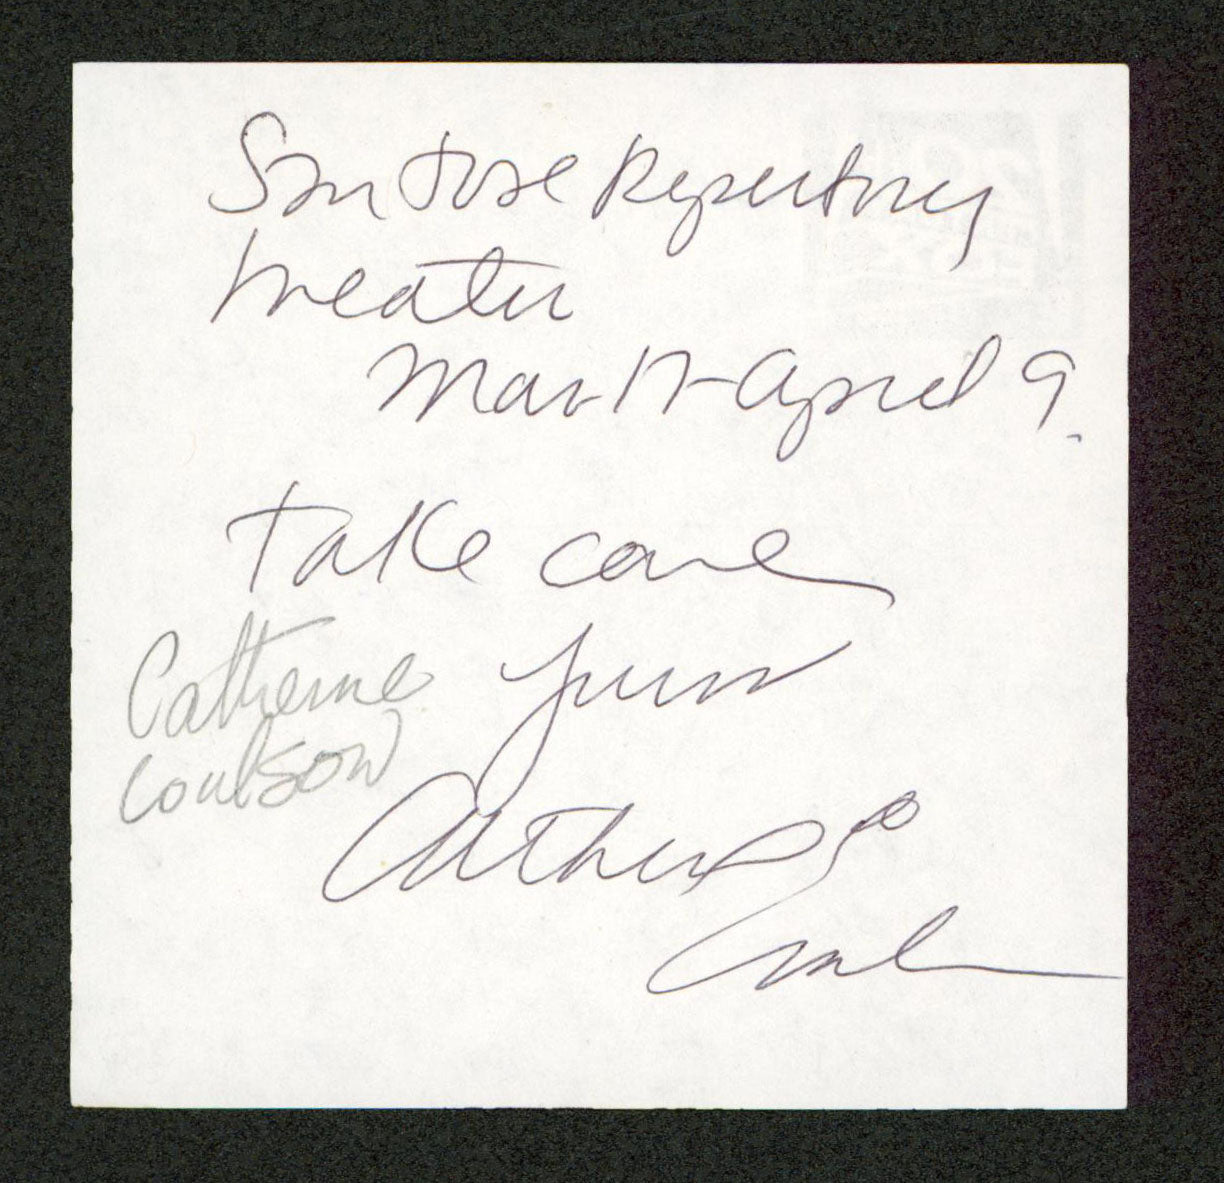 San Jose Repertory
Theater
Mar 17-April 9.
Take care
Yours
Catherine
Coulson
Catherine
Coulson